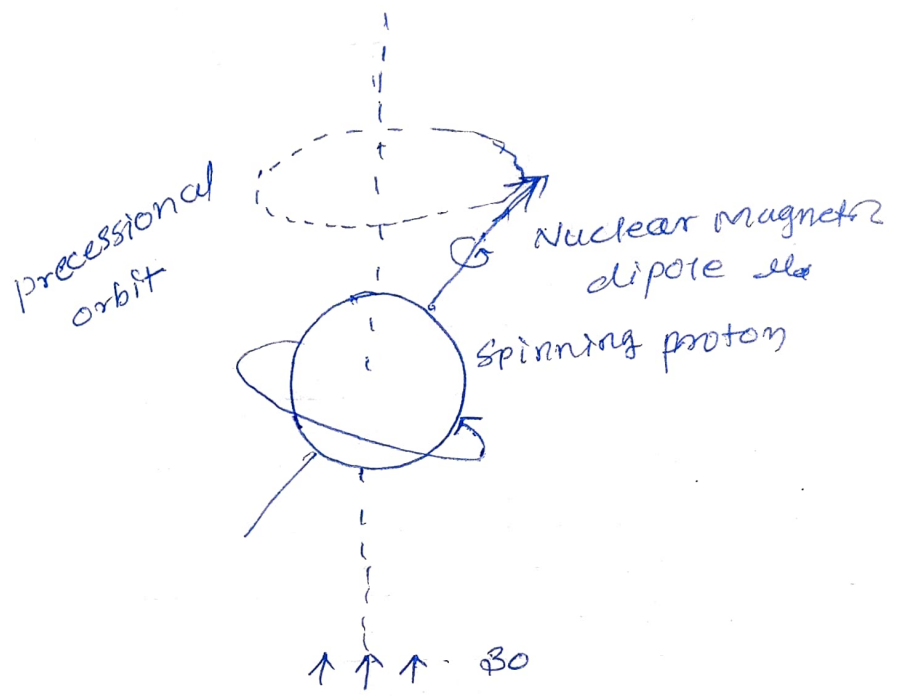 precessional
orbit
Nuclear Magnetic
dipole
Spinning proton
B0